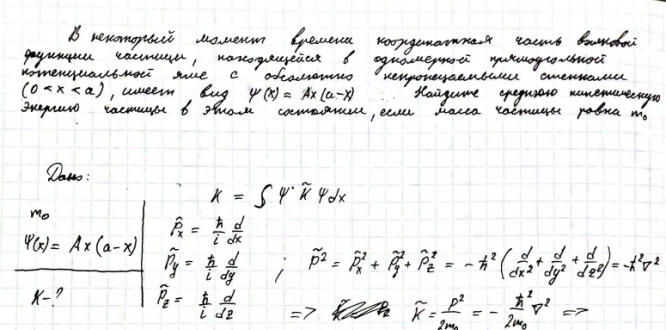 В некоторый момент времени координатная часть волновой
функции частицы, находящейся в одномерной прямоугольной
потенциальной яме с абсолютно непроницаемыми стенками
(0 < x < a), имеет вид Ψ(x) = Ax(a-x) . Найдите среднюю кинетическую
энергию частицы в этом состоянии, если масса частицы равна m₀
Дано:
m₀
Ψ(x) = Ax(a-x)
K-?
K = ∫ Ψ* K̂ Ψ dx
p̂ₓ = ħ/i d/dx
p̂_y = ħ/i d/dy ; p̂² = p̂ₓ² + p̂_y² + p̂_z² = -ħ² (d/dx² + d/dy² + d/dz²) = -ħ²∇²
p̂_z = ħ/i d/dz => K̂ = p²/2m₀ = - ħ²/2m₀ ∇² =>